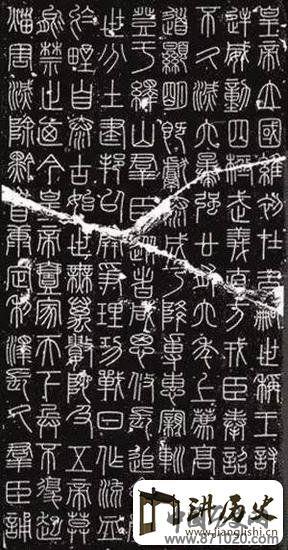 皇帝立國維初在昔嗣世稱王討
逆威動四極武義直方戎臣奉詔
不久滅六暴強廿有六年上薦高
道顯明既獻泰成乃降專惠親巡
登于繹山群臣從者咸思攸長追
世分土建邦以開爭理功戰日作流血
於野自泰古始世無萬數陀及五帝莫
能禁止廼今皇帝壹家天下兵不復起
災害滅除黔首康定利澤長久群臣誦
讲历史
www.jianglishi.com
www.871020.com